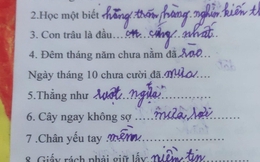 2.Học một biết hằng trăm hàng nghìn kiến th
3. Con trâu là đầu...cn cứng nhất
4. Đêm tháng năm chưa nằm đã sáo
Ngày tháng 10 chưa cười đã mưa
5.Thẳng như ruột ngựa
6. Cây ngay không sợ mưa rơi
7 .Chân yếu tay mềm
8 .Giấy rách phải giữ lấy niềm tin